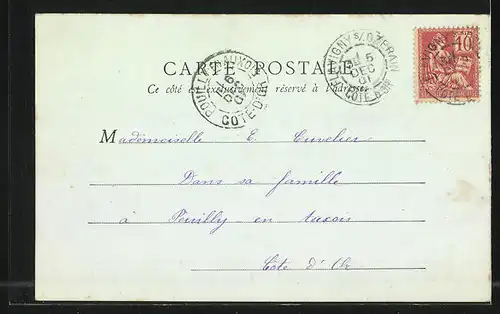 FLAVIGNY S/ OZERAIN
5
DEC
01
COTE-D'OR
10
CARTE POSTALE
POUILLY-
COTE-D'OR
Ce côté est exclusivement réservé à l'adresse
Mademoiselle E. Cuvelier
Dans sa famille
à Pouilly en auxois
Côte d'Or